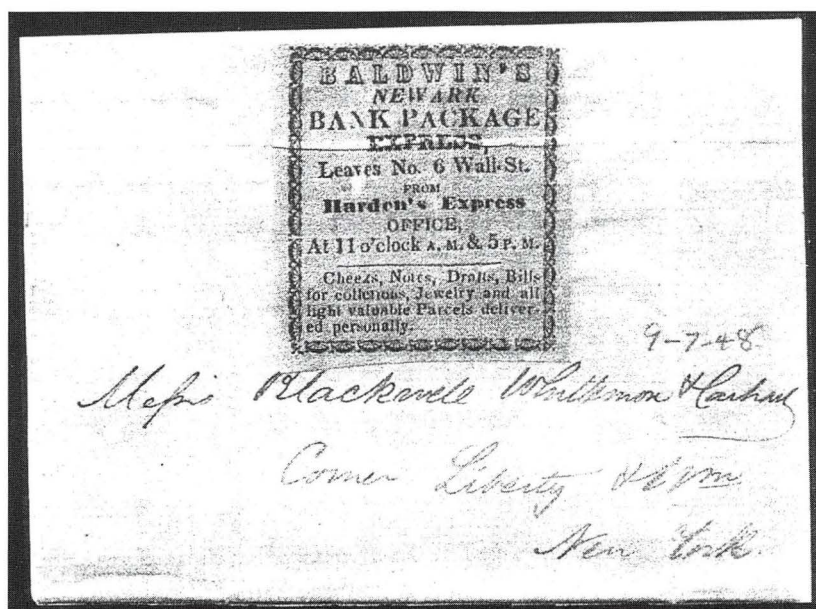 BALDWIN'S
NEWARK
BANK PACKAGE
EXPRESS,
Leaves No. 6 Wall-St.
FROM
Harden's Express
OFFICE,
At 11 o'clock A. M. & 5 P. M.
Checks, Notes, Drafts, Bills
for collections, Jewelry and all
light valuable Parcels deliver-
ed personally.
9-7-48
Messrs Blackwell Whittemore &
Corner Liberty &
New York